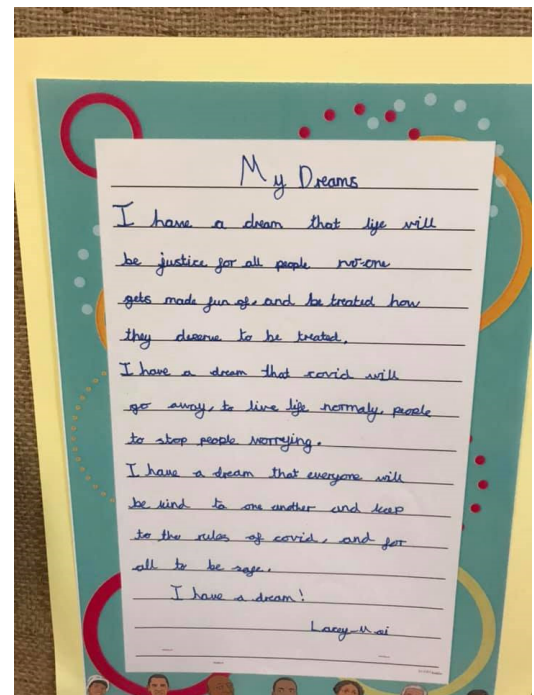 My Dreams
I have a dream that life will
be justice for all people no-one
gets made fun of, and be treated how
they deserve to be treated.
I have a dream that covid will
go away, to live life normaly, people
to stop people worrying.
I have a dream that everyone will
be kind to one another and keep
to the rules of covid, and for
all to be safe.
I have a dream!
Lacey-Mai